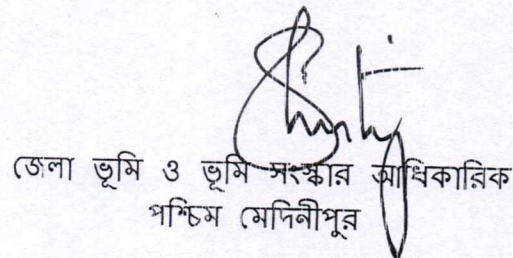 জেলা ভূমি ও ভূমি সংস্কার আধিকারিক
পশ্চিম মেদিনীপুর